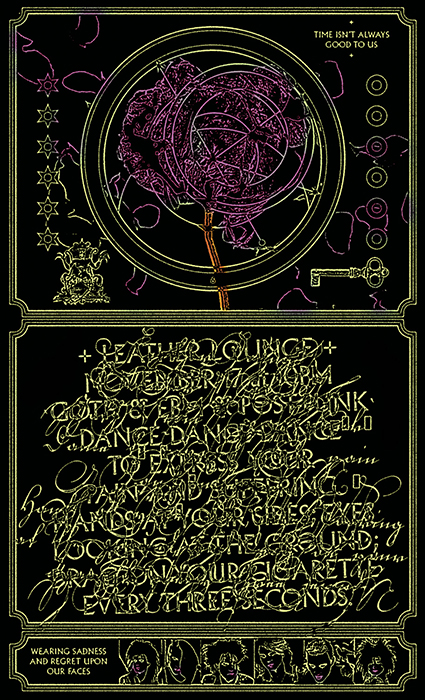 TIME ISN'T ALWAYS
GOOD TO US
+ LEATHER LOUNGE +
NOVEMBER 10PM
GOTH & EBM & POST PUNK
DANCE DANCE DANCE
TO EXPRESS YOUR
PAIN AND SUFFERING.
HANDS AT YOUR SIDES, EVER
LOOKING AT THE GROUND;
DRAG ON YOUR CIGARETTE
EVERY THREE SECONDS.
WEARING SADNESS
AND REGRET UPON
OUR FACES